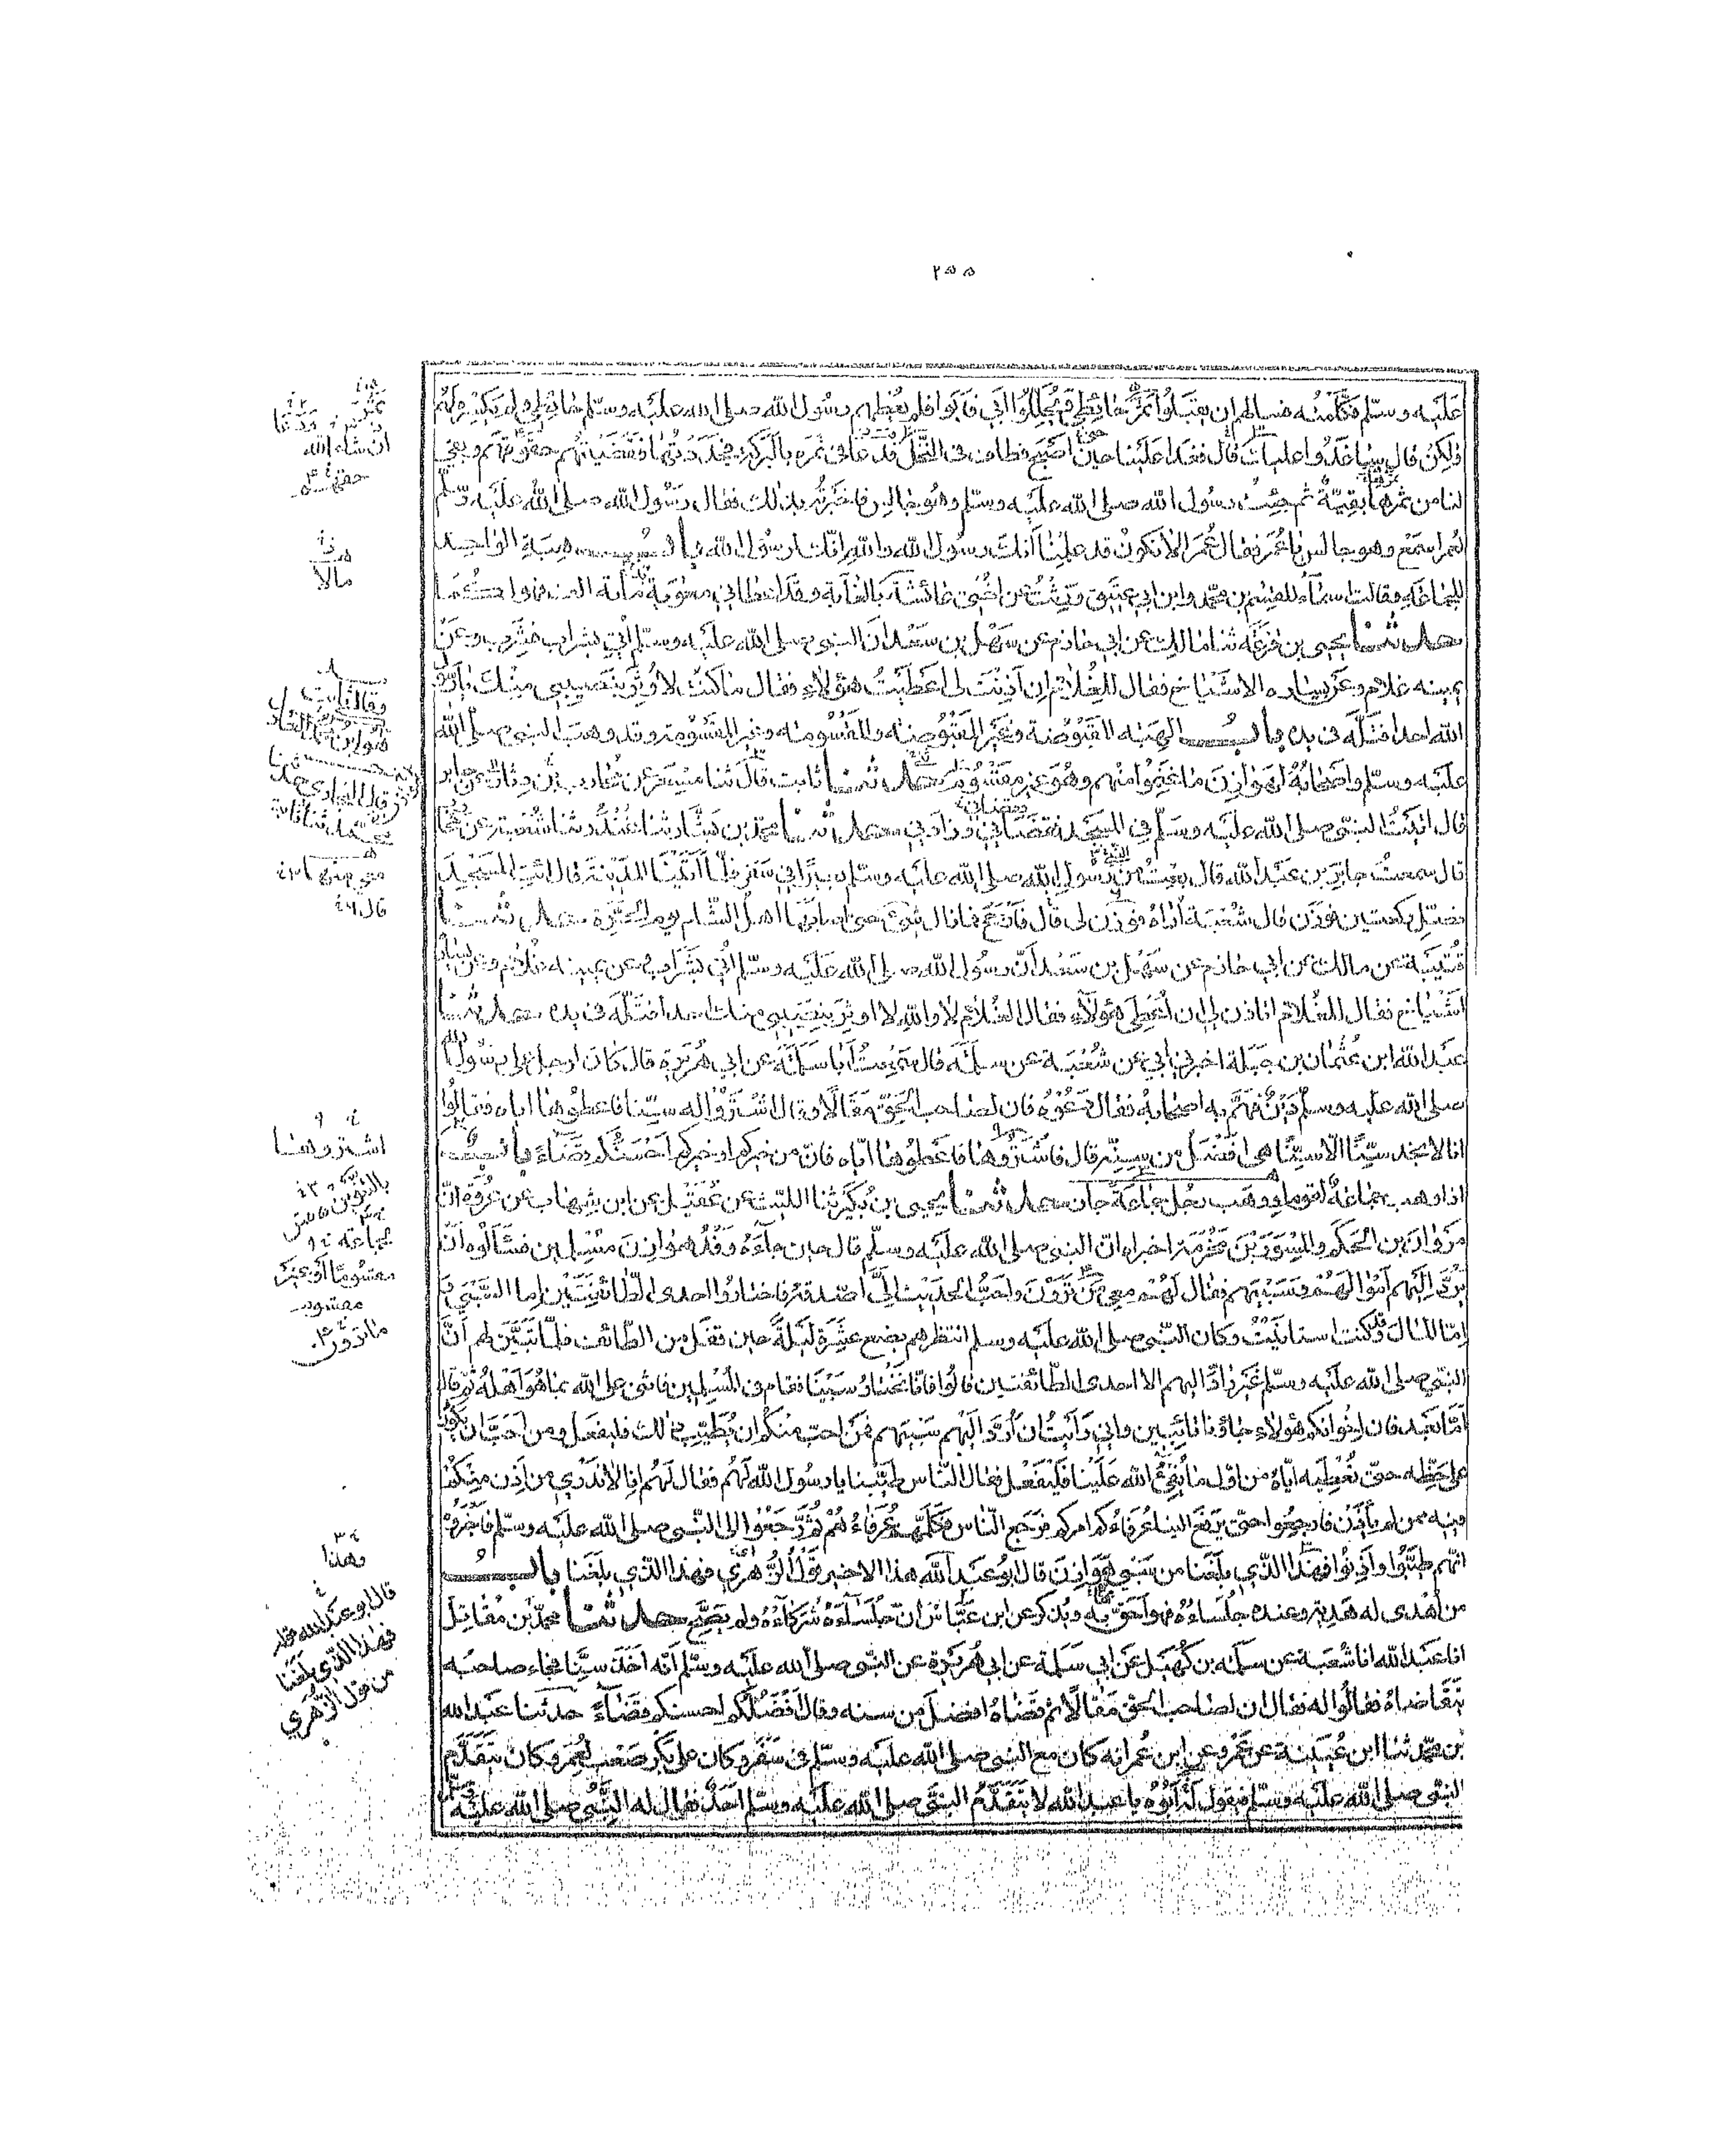 ٢٥٥
عليه وسلم فكلمته فسالهم ان يقبلوا تمر حائطي ويحللوا ابي فابوا فلم يعطهم رسول الله صلى الله عليه وسلم حائطي ولم يكسره لهم
ولكن قال ساغدو عليك قال فغدا علينا حين اصبح فطاف في النخل فدعا في ثمره بالبركة فجددتها فقضيتهم حقوقهم وبقي
لنا من ثمرها بقية ثم جئت رسول الله صلى الله عليه وسلم وهو جالس فاخبرته بذلك فقال رسول الله صلى الله عليه وسلم
لعمر اسمع وهو جالس يا عمر فقال عمر الا نكون قد علمنا انك رسول الله والله انك لرسول الله باب هبة الواحد
للجماعة وقالت اسماء للقسم بن محمد وابن ابي عتيق ورثت عن اختي عائشة بالغابة وقد اعطاني معوية مائة الف فهو لكما
حدثنا يحيى بن قزعة ثنا مالك عن ابي حازم عن سهل بن سعد ان النبي صلى الله عليه وسلم اتي بشراب فشرب وعن
يمينه غلام وعن يساره الاشياخ فقال للغلام ان اذنت لي اعطيت هؤلاء فقال ما كنت لاوثر بنصيبي منك يا رسول
الله احدا فتله في يده باب الهبة المقبوضة وغير المقبوضة والمقسومة وغير المقسومة وقد وهب النبي صلى الله
عليه وسلم واصحابه لهوازن ما غنموا منهم وهو غير مقسوم حدثنا ثابت قال ثنا مسعر عن محارب بن دثار عن جابر
قال اتيت النبي صلى الله عليه وسلم في المسجد فقضاني وزادني حدثنا محمد بن بشار ثنا غندر ثنا شعبة عن محارب
قال سمعت جابر بن عبد الله قال بعت من رسول الله صلى الله عليه وسلم بعيرا في سفر فلما اتينا المدينة قال ائت المسجد
فصل ركعتين فوزن قال شعبة اراه فوزن لي قال فارجح فما زال شيء حتى اصابها اهل الشام يوم الحرة حدثنا
قتيبة عن مالك عن ابي حازم عن سهل بن سعد ان رسول الله صلى الله عليه وسلم اتي بشراب وعن يمينه غلام وعن يساره
اشياخ فقال للغلام اتاذن لي ان اعطي هؤلاء فقال الغلام لا والله لا اوثر بنصيبي منك احدا فتله في يده حدثنا
عبد الله ابن عثمان بن جبلة اخبرني ابي عن شعبة عن سلمة قال سمعت ابا سلمة عن ابي هريرة قال كان لرجل على رسول الله
صلى الله عليه وسلم دين فهم به اصحابه فقال دعوه فان لصاحب الحق مقالا وقال اشتروا له سنا فاعطوها اياه فقالوا
انا لا نجد سنا الا سنا هي افضل من سنه قال فاشتروها فاعطوها اياه فان من خيركم او خيركم احسنكم قضاء باب
اذا وهب جماعة لقوم او وهب رجل جماعة جاز حدثنا يحيى بن بكير ثنا الليث عن عقيل عن ابن شهاب عن عروة ان
مروان بن الحكم والمسور بن مخرمة اخبراه ان النبي صلى الله عليه وسلم قال حين جاءه وفد هوازن مسلمين فسالوه ان
يرد اليهم اموالهم وسبيهم فقال لهم معي من ترون واحب الحديث الي اصدقه فاختاروا احدى الطائفتين اما السبي و
اما المال وقد كنت استانيت وكان النبي صلى الله عليه وسلم انتظرهم بضع عشرة ليلة حين قفل من الطائف فلما تبين لهم ان
النبي صلى الله عليه وسلم غير راد اليهم الا احدى الطائفتين قالوا فانا نختار سبينا فقام في المسلمين فاثنى على الله بما هو اهله ثم قال
اما بعد فان اخوانكم هؤلاء جاؤنا تائبين واني رايت ان ارد اليهم سبيهم فمن احب منكم ان يطيب ذلك فليفعل ومن احب ان يكون
على حظه حتى نعطيه اياه من اول ما يفيء الله علينا فليفعل فقال الناس طيبنا يا رسول الله لهم فقال لهم انا لا ندري من اذن منكم
فيه ممن لم ياذن فارجعوا حتى يرفع الينا عرفاءكم امركم فرجع الناس فكلمهم عرفاءهم ثم رجعوا الى النبي صلى الله عليه وسلم فاخبروه
انهم طيبوا واذنوا فهذا الذي بلغنا من سبي هوازن قال ابو عبد الله هذا الاخير قول الزهري فهذا الذي بلغنا باب
من اهدي له هدية وعنده جلساءه فهو احق به ويذكر عن ابن عباس ان جلساءه شركاءه ولم يصح حدثنا محمد بن مقاتل
انا عبد الله انا شعبة عن سلمة بن كهيل عن ابي سلمة عن ابي هريرة عن النبي صلى الله عليه وسلم انه اخذ سنا فجاء صاحبه
يتقاضاه فقالوا له فقال ان لصاحب الحق مقالا ثم قضاه افضل من سنه وقال افضلكم احسنكم قضاء حدثنا عبد الله
بن محمد ثنا ابن عيينة عن عمرو عن ابن عمر انه كان مع النبي صلى الله عليه وسلم في سفر وكان على بكر صعب لعمر وكان يتقدم
النبي صلى الله عليه وسلم فيقول ابوه يا عبد الله لا يتقدم النبي صلى الله عليه وسلم احد فقال له النبي صلى الله عليه
ان شاء الله
مالا
وقال ثابت
قال
اشتروها
جماعة
مقسوما او غير
مقسوم
وهذا
قال ابو عبد الله
فهذا الذي بلغنا
من قول الزهري